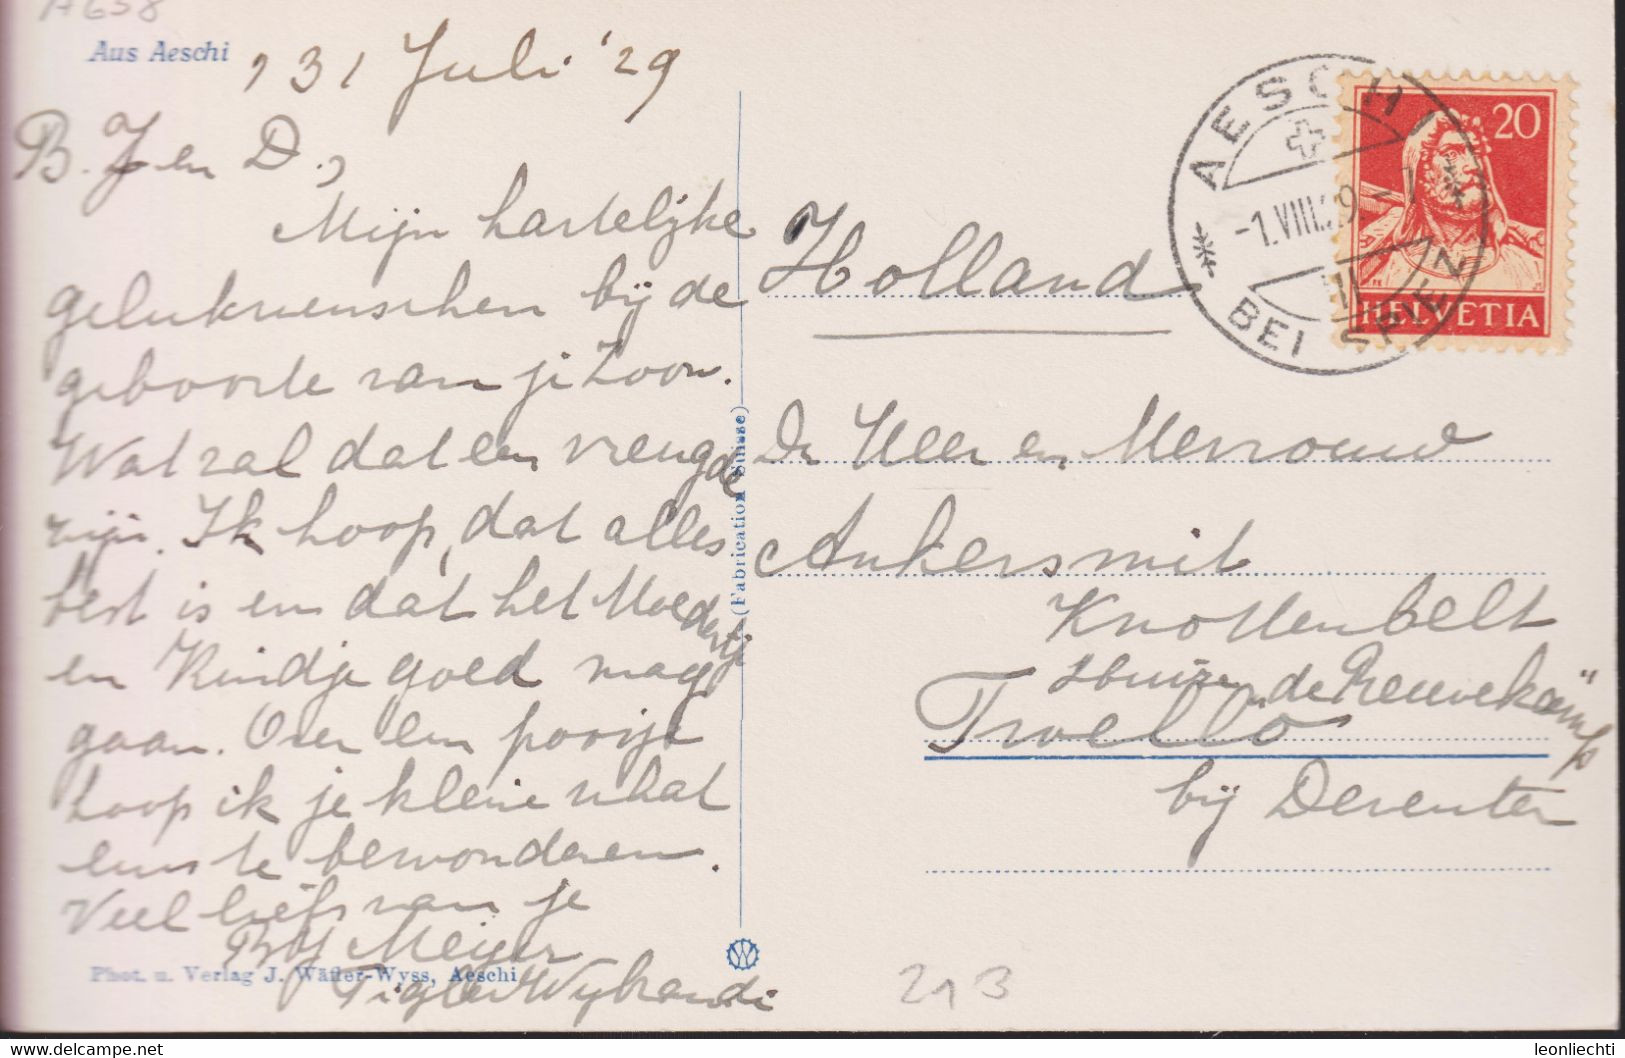 A658
Aus Aeschi
31 Juli '29
B. J en D.,
Mijn hartelijke
gelukwenschen bij de
geboorte van je Zoon.
Wat zal dat een vreugde
zijn. Ik hoop, dat alles
best is en dat het Moedertje
en Kindje goed mag
gaan. Over een poosje
hoop ik je kleine schat
eens te bewonderen.
Veel liefs van je
Meijer
Phot. u. Verlag J. Wäfler-Wyss, Aeschi
(Fabrication Suisse)
W
AESCHI
-1.VIII.29.-7
BEI SPIEZ
20
HELVETIA
Holland
De Heer en Mevrouw
Ankersmit
Knottenbelt
Huize "de Kleuvekamp"
Twello
bij Deventer
293
leonliechti